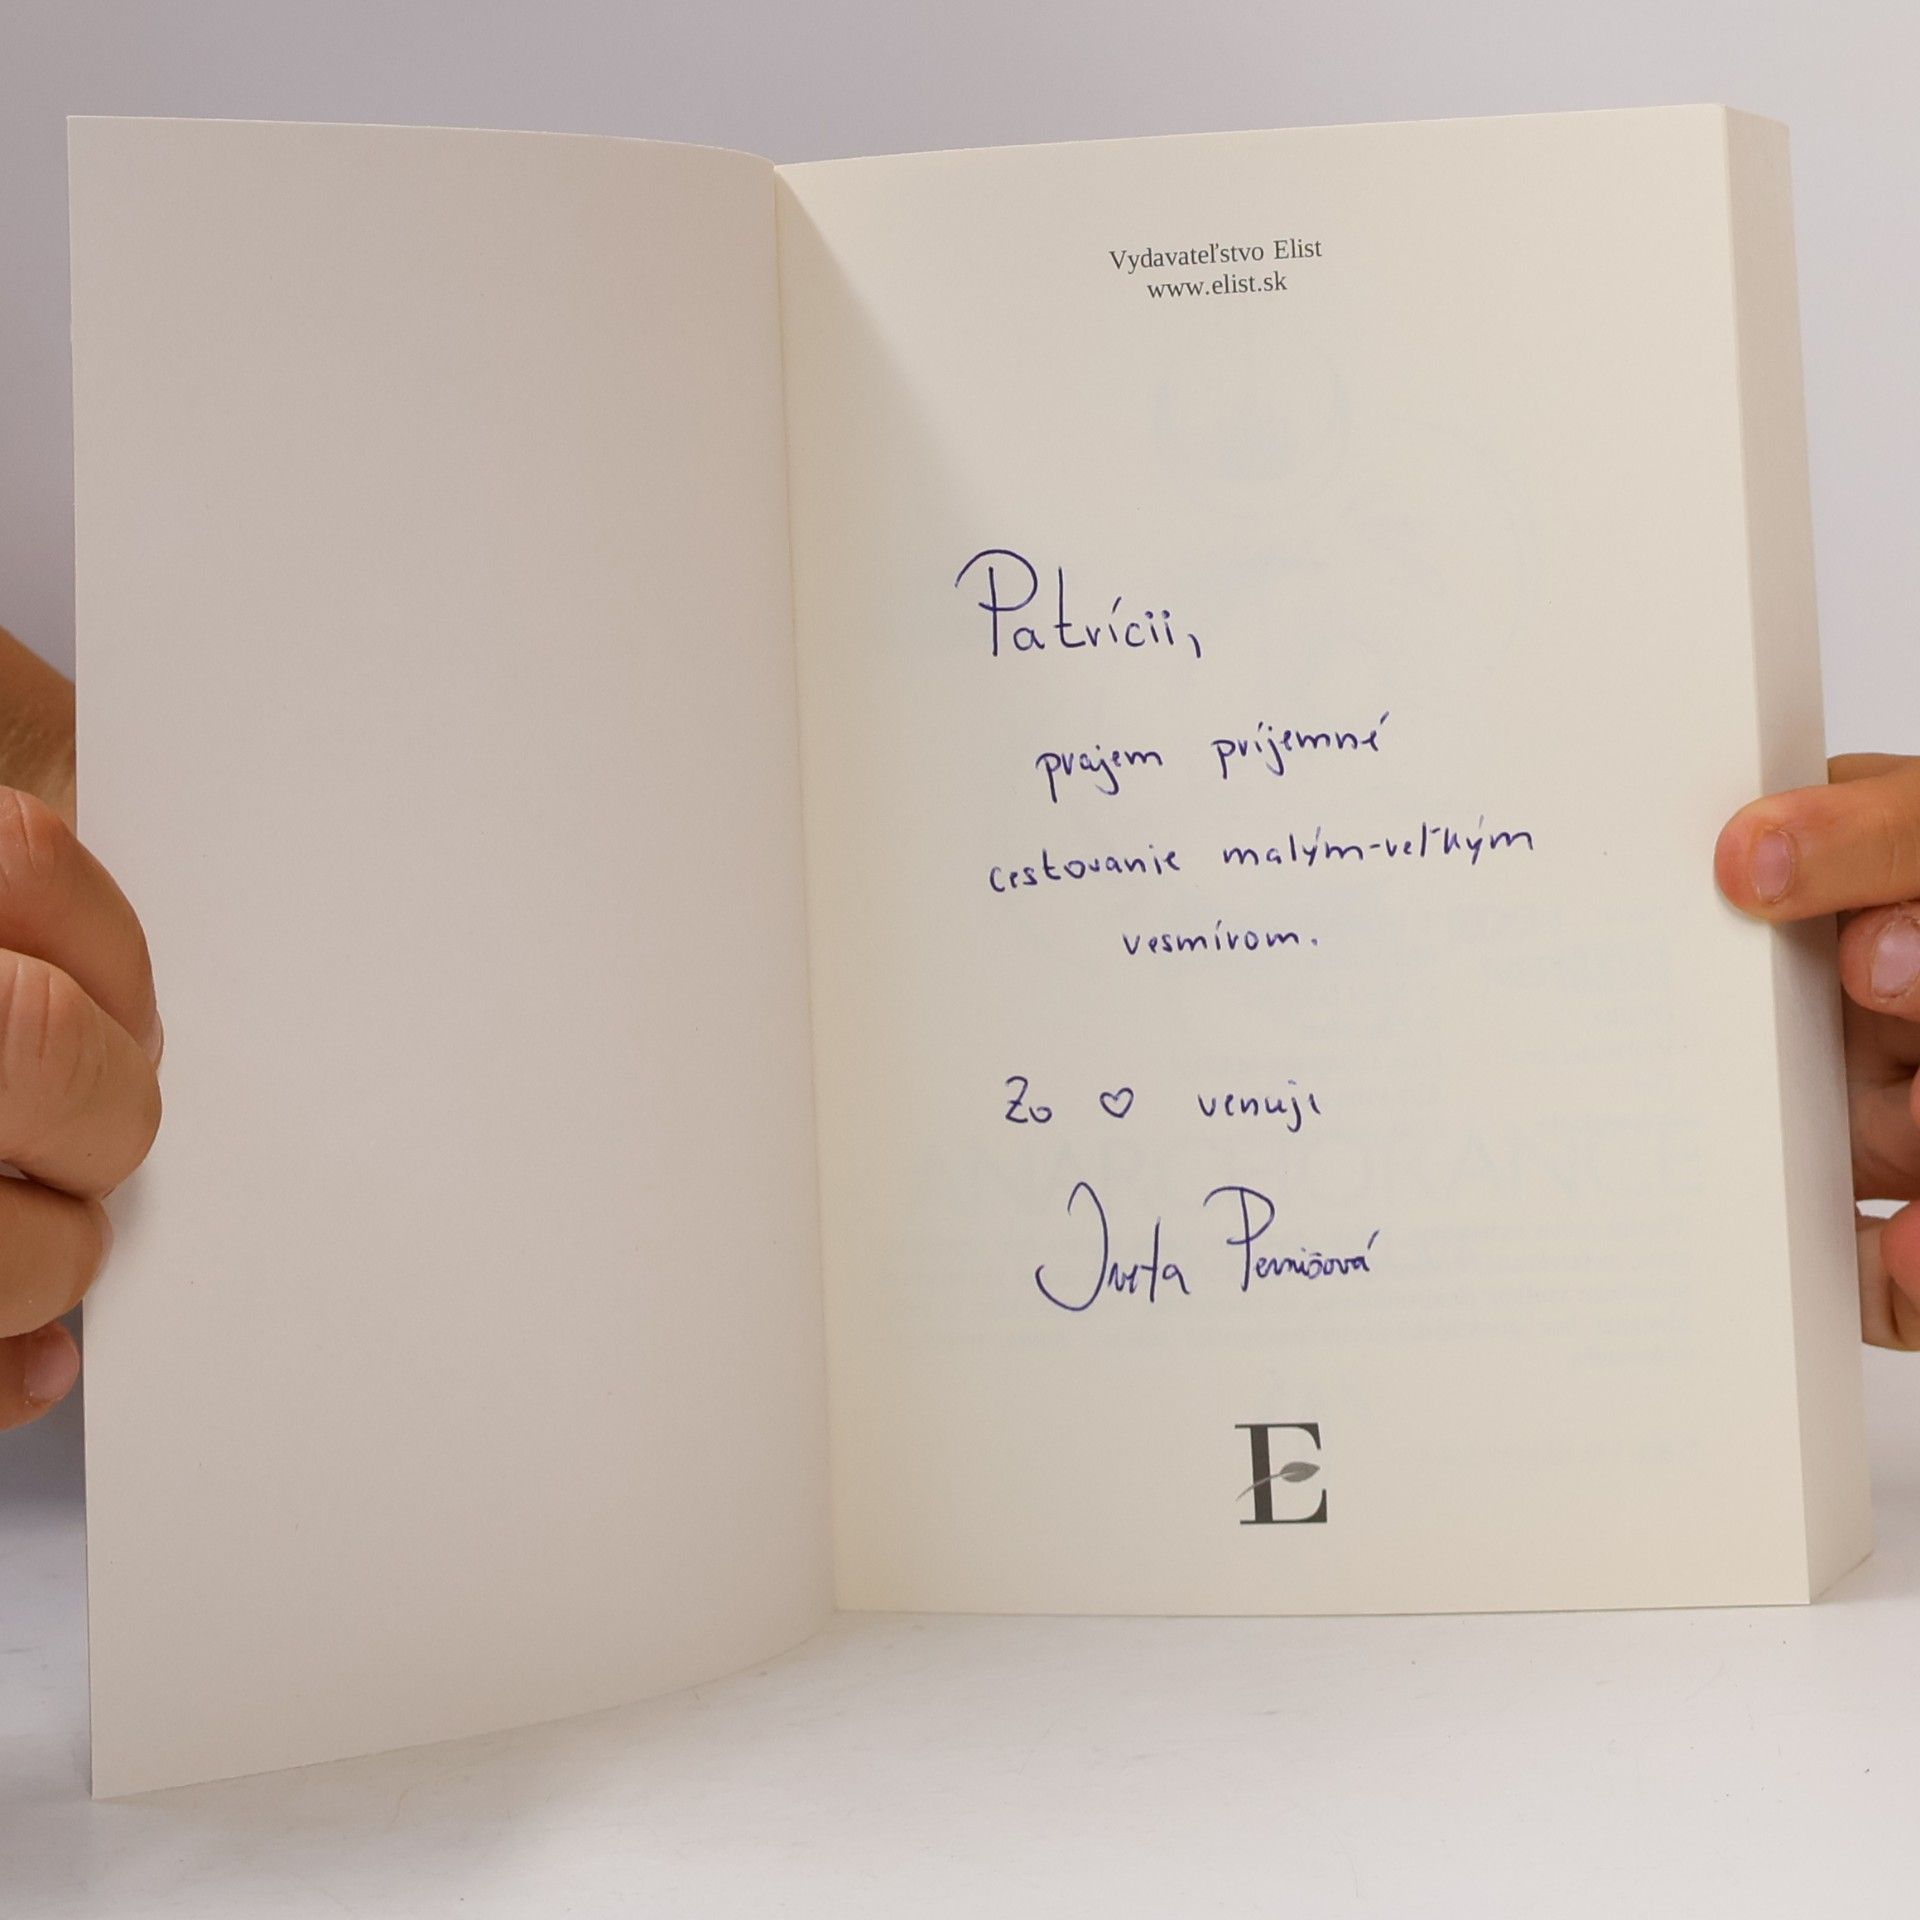 Vydavateľstvo Elist
www.elist.sk
Patrícii,
prajem príjemné
cestovanie malým-veľkým
vesmírom.
Zo ♡ venuje
Iveta Pernišová
E